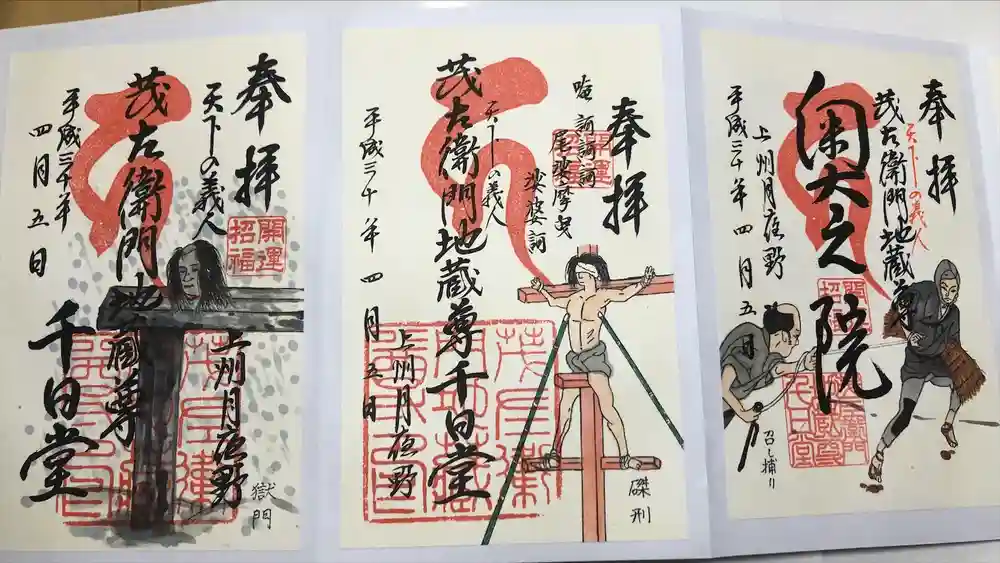 奉拝
茂左衛門地蔵尊
天下の義人
南大之院
上州月夜野
平成三十年四月五日
召し捕り
奉拝
開運
招福
唵訶訶訶
尾娑摩曳
娑婆訶
茂左衛門地蔵尊千日堂
天下の義人
上州月夜野
平成三十年四月五日
磔刑
奉拝
開運
招福
天下の義人
茂左衛門地蔵尊
千日堂
上州月夜野
平成三十年
四月五日
獄門